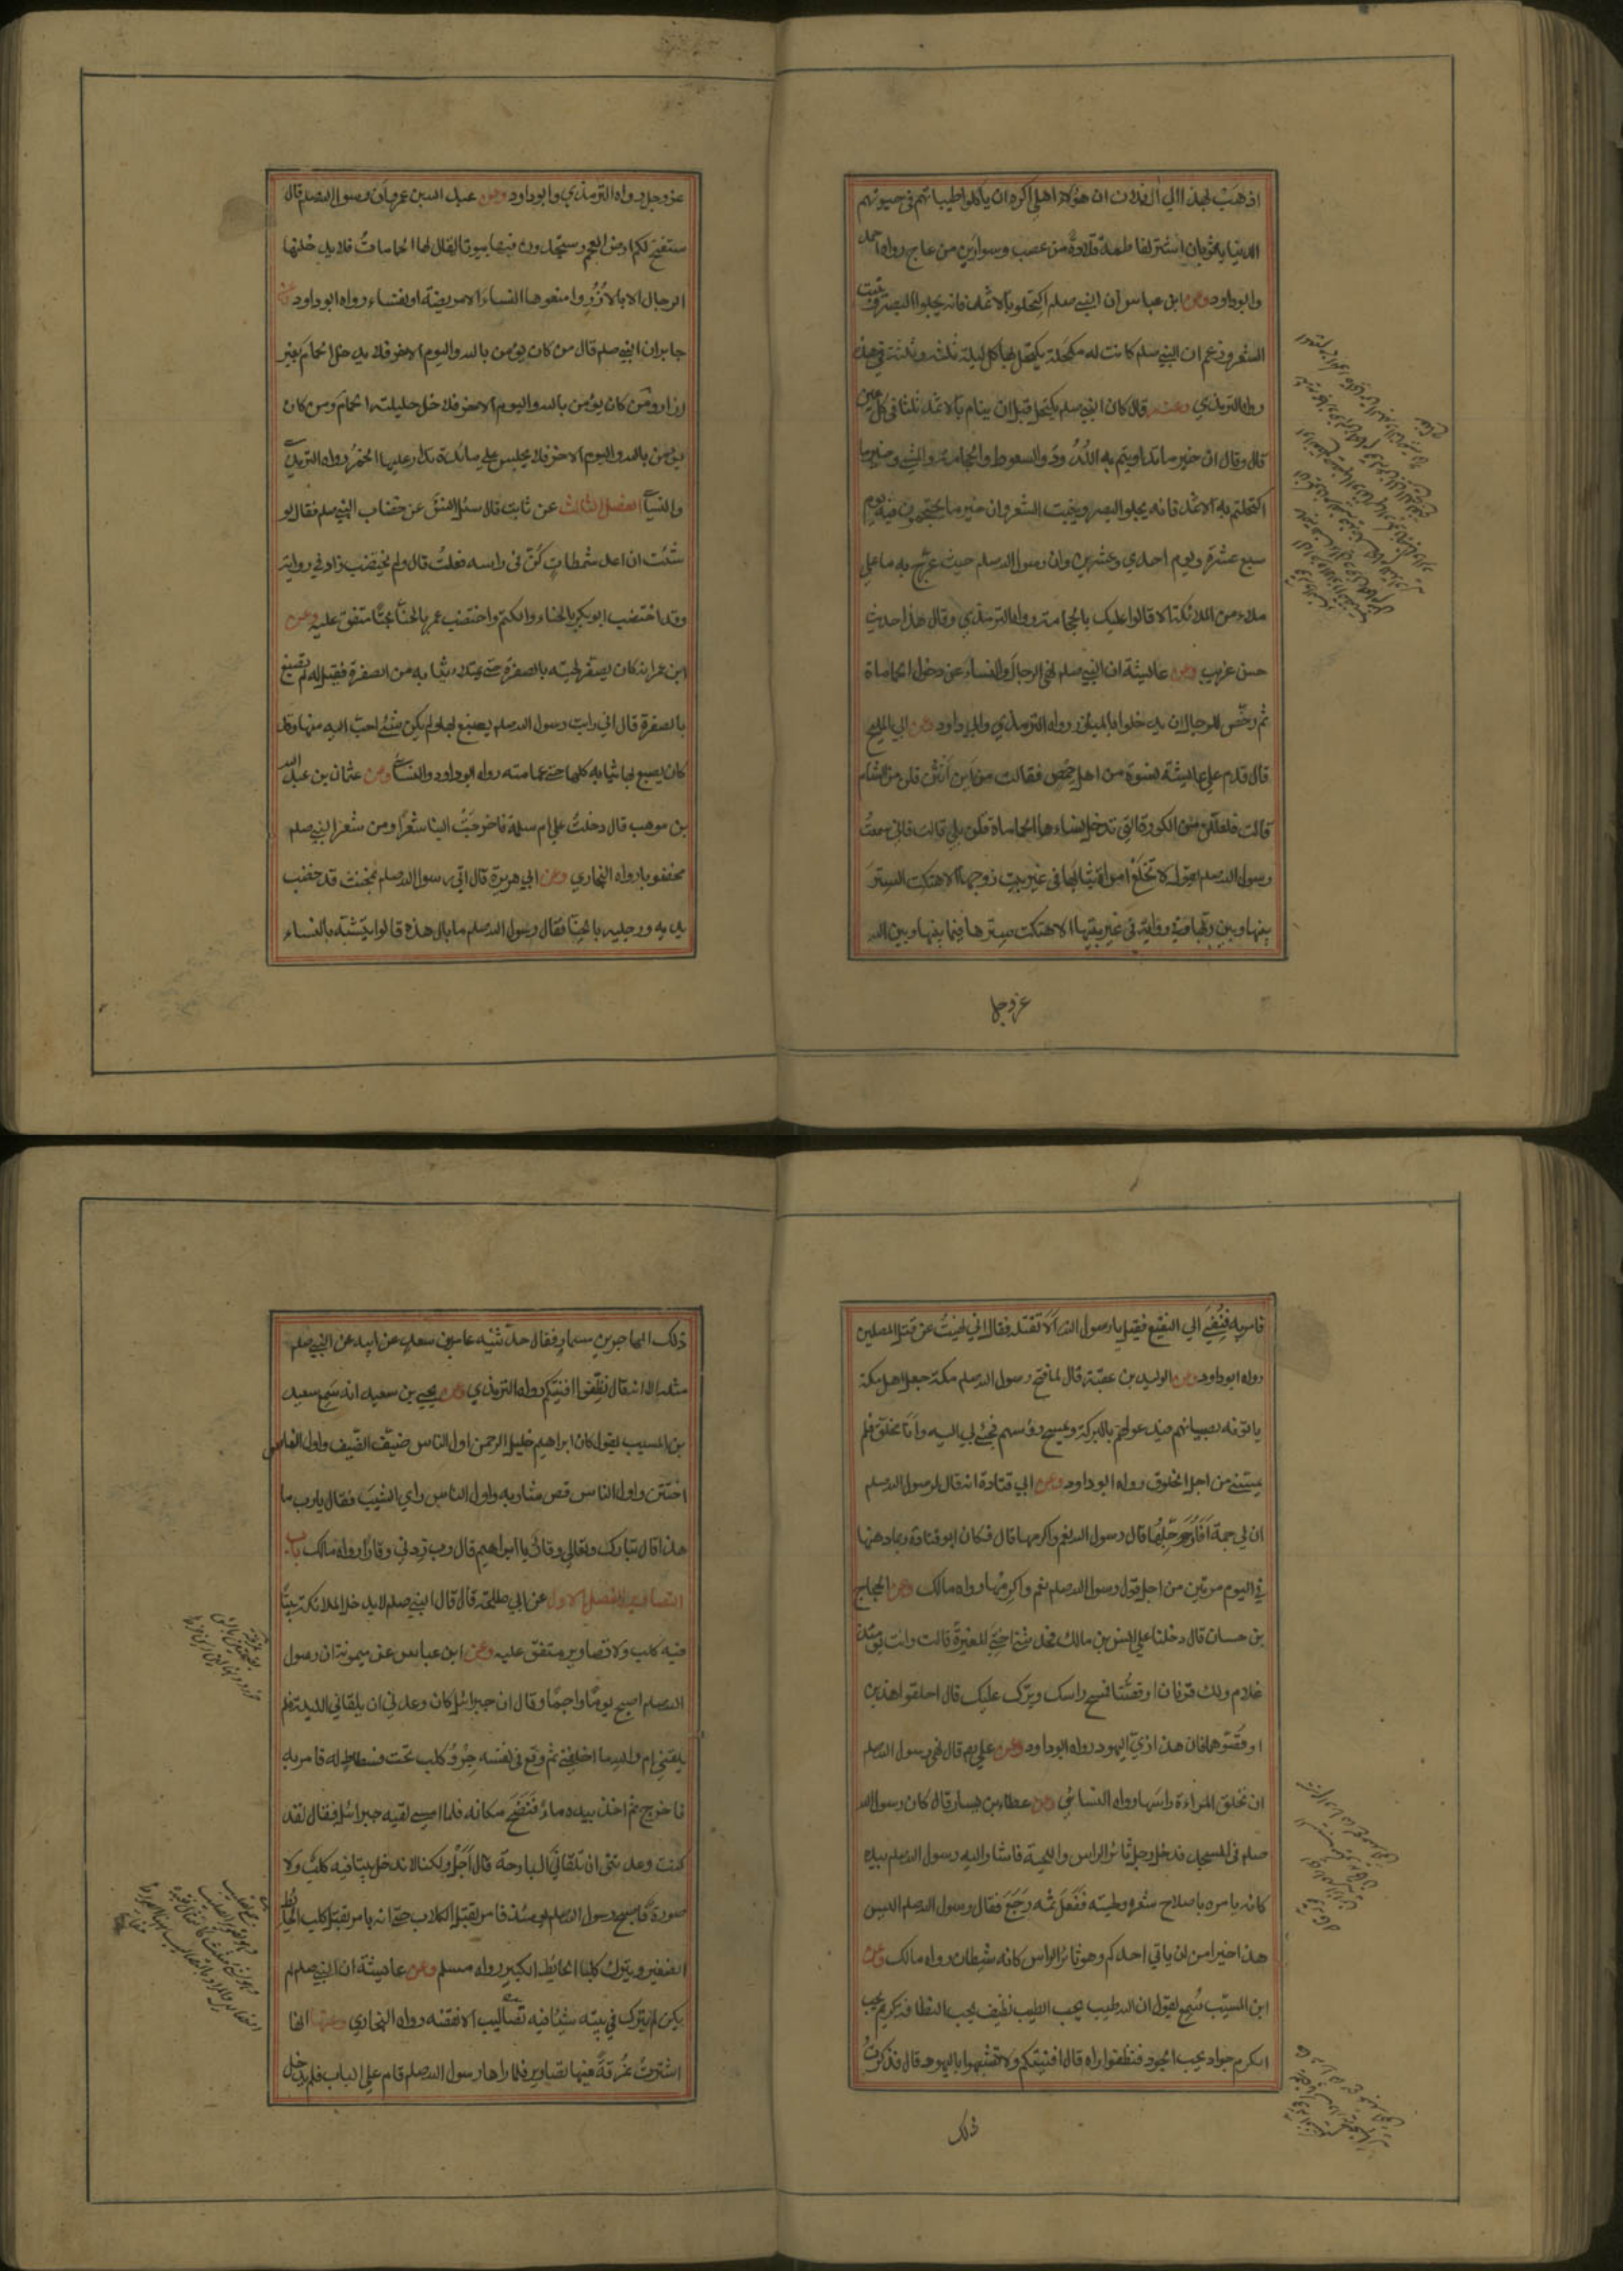 اذهب بهذا الي ال فلان ان هؤلاء اهلي اكره ان ياكلوا طيباتهم في حيوتهم
الدنيا يا ثوبان اشتر لفاطمة قلادة من عصب وسوارين من عاج رواه احمد
وابوداود وعن ابن عباس ان النبي صلم قال اكتحلوا بالاثمد فانه يجلوا البصر وينبت
الشعر وزعم ان النبي صلم كانت له مكحلة يكتحل بها كل ليلة ثلثة وثلثة في هذه
رواه الترمذي وعنه قال كان النبي صلم يكتحل قبل ان ينام بالاثمد ثلثا في كل عين
قال وقال ان خير ما تداويتم به اللدود والسعوط والحجامة والمشي وخير ما
اكتحلتم به الاثمد فانه يجلوا البصر وينبت الشعر وان خير ما تحتجمون فيه يوم
سبع عشرة ويوم احدي وعشرين وان رسول الله صلم حيث عرج به ما علي
ملاء من الملائكة الا قالوا عليك بالحجامة رواه الترمذي وقال هذا حديث
حسن غريب وعن عايشة ان النبي صلم نهي الرجال والنساء عن دخول الحمامات
ثم رخص للرجال ان يدخلوا بالميازر رواه الترمذي وابوداود وعن ابي المليح
قال قدم علي عايشة نسوة من اهل حمص فقالت من اين انتن قلن من الشام
قالت فلعلكن من الكورة التي تدخل نساءها الحمامات قلن بلي قالت فاني سمعت
رسول الله صلم يقول لا تخلع امراة ثيابها في غير بيت زوجها الا هتكت الستر
بينها وبين ربها وفي رواية في غير بيتها الا هتكت سترها فيما بينها وبين الله
عز وجل
عز وجل رواه الترمذي وابوداود وعن عبد الله بن عمرو ان رسول الله صلم قال
ستفتح لكم ارض العجم وستجدون فيها بيوتا يقال لها الحمامات فلا يدخلنها
الرجال الا بالازر وامنعوها النساء الا مريضة او نفساء رواه ابوداود وعن
جابر ان النبي صلم قال من كان يؤمن بالله واليوم الاخر فلا يدخل الحمام بغير
ازار ومن كان يؤمن بالله واليوم الاخر فلا يدخل حليلته الحمام ومن كان
يؤمن بالله واليوم الاخر فلا يجلس علي مائدة تدار عليها الخمر رواه الترمذي
والنسائي الفصل الثالث عن ثابت قال سئل انس عن خضاب النبي صلم فقال لو
شئت ان اعد شمطات كن في راسه فعلت قال ولم يختضب زاد في رواية
وقد اختضب ابوبكر بالحناء والكتم واختضب عمر بالحناء بحتا متفق عليه وعن
ابن عمر انه كان يصفر لحيته بالصفرة حتي يمتلاء ثيابه من الصفرة فقيل له لم تصبغ
بالصفرة قال اني رايت رسول الله صلم يصبغ بها ولم يكن شئ احب اليه منها وقد
كان يصبغ بها ثيابه كلها حتي عمامته رواه ابوداود والنسائي وعن عثمان بن عبد الله
بن موهب قال دخلت علي ام سلمة فاخرجت الينا شعرا من شعر النبي صلم
مخضوبا رواه البخاري وعن ابي هريرة قال اتي رسول الله صلم بمخنث قد خضب
يديه ورجليه بالحناء فقال رسول الله صلم ما بال هذه قالوا يتشبه بالنساء
فامر به فنفي الي النقيع فقيل يا رسول الله الا تقتله فقال اني نهيت عن قتل المصلين
رواه ابوداود وعن الوليد بن عقبة قال لما فتح رسول الله صلم مكة جعل اهل مكة
ياتونه بصبيانهم فيدعو لهم بالبركة ويمسح رؤسهم فجئ بي اليه وانا مخلق فلم
يمسني من اجل الخلوق رواه ابوداود وعن ابي قتادة انه قال لرسول الله صلم
ان لي جمة افارجلها قال رسول الله نعم واكرمها قال فكان ابوقتادة ربما دهنها
في اليوم مرتين من اجل قول رسول الله صلم نعم واكرمها رواه مالك وعن الحجاج
بن حسان قال دخلنا علي انس بن مالك فحدثتني اختي المغيرة قالت وانت يومئذ
غلام ولك قرنان او قصتان فمسح راسك وبرك عليك قال احلقوا هذين
او قصوهما فان هذا زي اليهود رواه ابوداود وعن علي رض قال نهي رسول الله صلم
ان تحلق المراءة راسها رواه النسائي وعن عطاء بن يسار قال كان رسول الله
صلم في المسجد فدخل رجل ثائر الراس واللحية فاشار اليه رسول الله صلم بيده
كانه يامره باصلاح شعره ولحيته ففعل ثمه رجع فقال رسول الله صلم اليس
هذا خيرا من ان ياتي احدكم وهو ثائر الراس كانه شيطان رواه مالك وعن
ابن المسيب سمع يقول ان الله طيب يحب الطيب نظيف يحب النظافة كريم يحب
الكرم جواد يحب الجود فنظفوا اراه قال افنيتكم ولا تشبهوا باليهود قال فذكرت
ذلك
ذلك لمهاجر بن مسمار فقال حدثنيه عامر بن سعد عن ابيه عن النبي صلم
مثله الا انه قال نظفوا افنيتكم رواه الترمذي وعن يحيي بن سعيد انه سمع سعيد
بن المسيب يقول كان ابراهيم خليل الرحمن اول الناس ضيف الضيف واول الناس
اختتن واول الناس قص شاربه واول الناس راي الشيب فقال يارب ما
هذا قال تبارك وتعالي وقار يا ابراهيم قال رب زدني وقارا رواه مالك باب
التصاوير الفصل الاول عن ابي طلحة قال قال النبي صلم لا يدخل الملائكة بيتا
فيه كلب ولا تصاوير متفق عليه وعن ابن عباس عن ميمونة ان رسول
الله صلم اصبح يوما واجما وقال ان جبرائيل كان وعدني ان يلقاني الليلة فلم
يلقني ام والله ما اخلفني ثم وقع في نفسه جرو كلب تحت فسطاط له فامر به
فاخرج ثم اخذ بيده ماء فنضح مكانه فلما امسي لقيه جبرائيل فقال لقد
كنت وعدتني ان تلقاني البارحة قال اجل ولكنا لا ندخل بيتا فيه كلب ولا
صورة فاصبح رسول الله صلم يومئذ فامر بقتل الكلاب حتي انه يامر بقتل كلب الحائط
الصغير ويترك كلب الحائط الكبير رواه مسلم وعن عايشة ان النبي صلم لم
يكن يترك في بيته شيئا فيه تصاليب الا نقضه رواه البخاري وعنها انها
اشترت نمرقة فيها تصاوير فلما راها رسول الله صلم قام علي الباب فلم يدخل